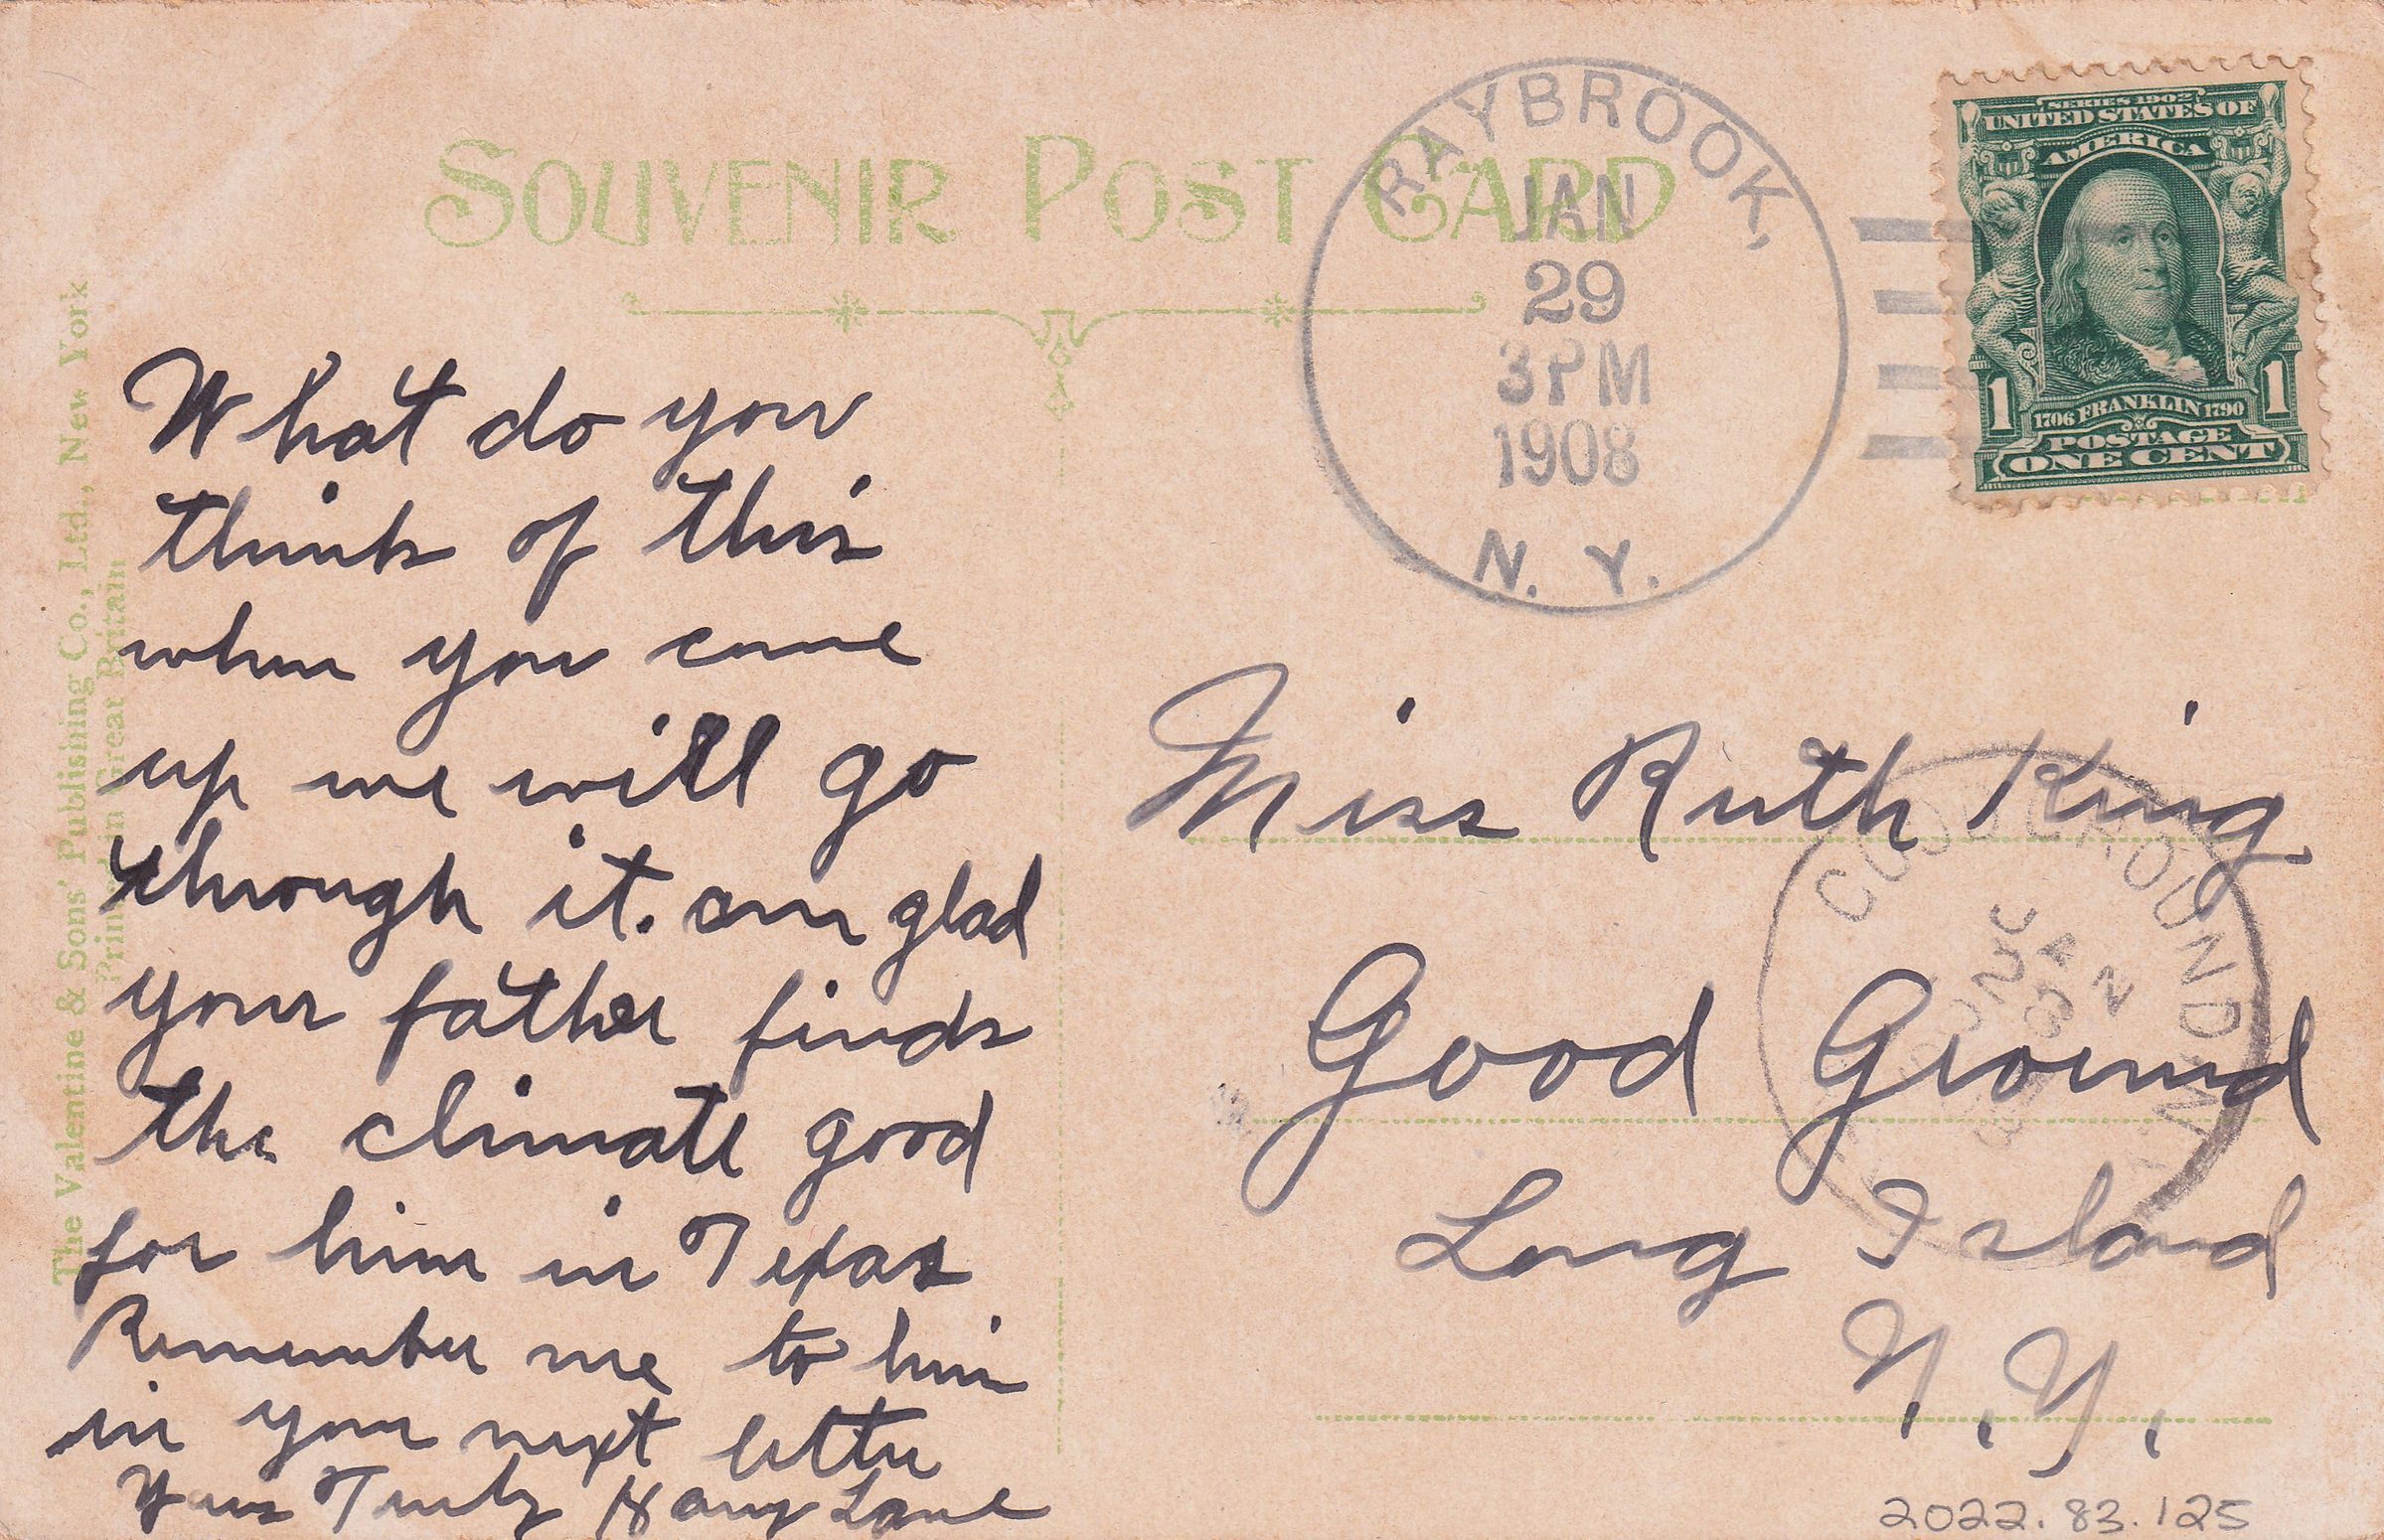 SOUVENIR POST CARD
The Valentine & Sons' Publishing Co., Ltd., New York
Printed in Great Britain
RAYBROOK,
JAN
29
3 PM
1908
N. Y.
SERIES 1902
UNITED STATES OF
AMERICA
1 1
1706 FRANKLIN 1790
POSTAGE
ONE CENT
What do you
think of this
when you come
up we will go
through it. am glad
your father finds
the climate good
for him in Texas
Remember me to him
in your next letter
Yours Truly Harry Lane
Miss Ruth King
Good Ground
Long Island
N.Y.
GROUND
JAN
2022.83.125